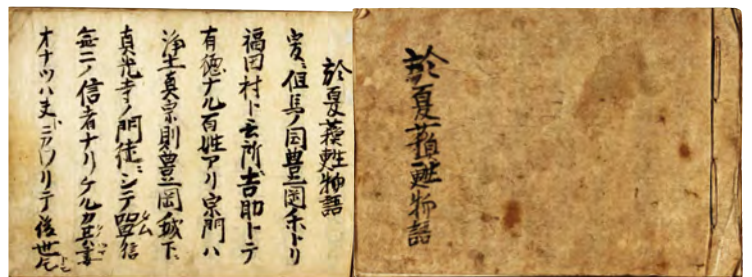 於夏蘓甦物語
於夏蘓甦物語
爰ニ但馬ノ国豊岡ホトリ
福田村ト云所吉助トテ
有徳ナル百姓アリ宗門ハ
浄土真宗則豊岡城下ニ
真光寺ノ門徒ニシテ堅信
無二ノ信者ナリケルカ其妻
オナツハ夫ニカワリテ後世